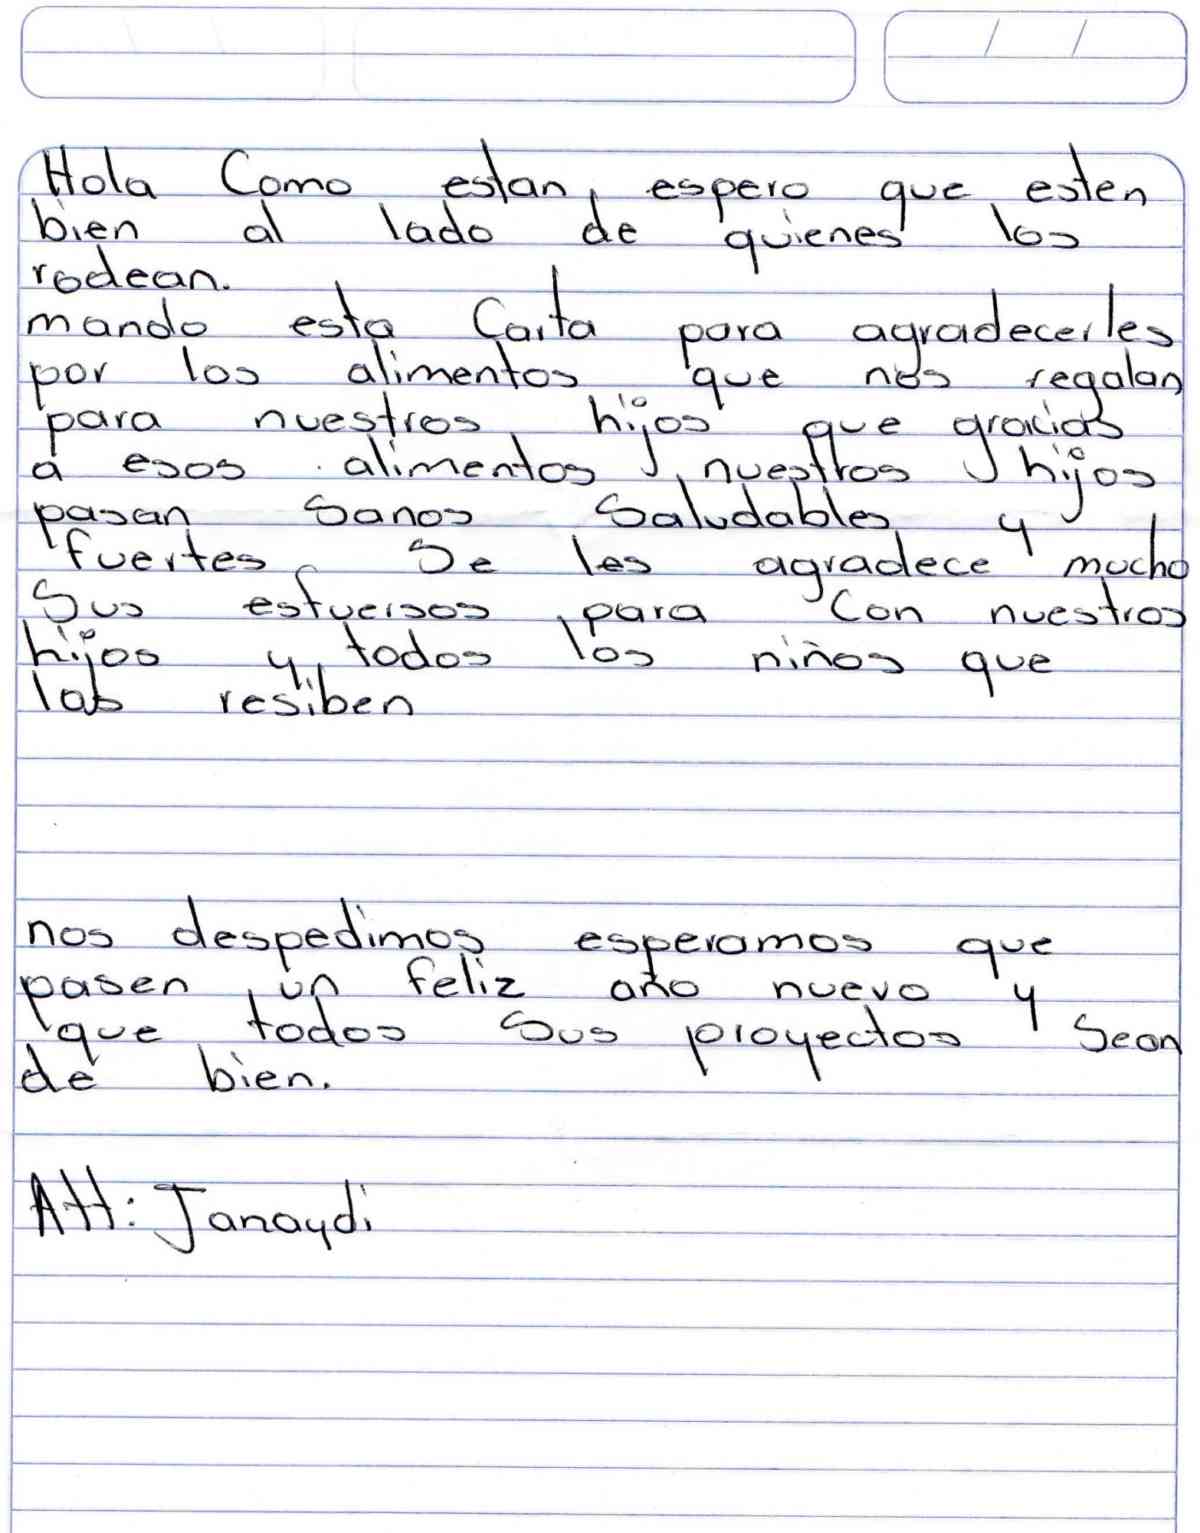 Hola Como estan, espero que esten
bien al lado de quienes los
rodean.
mando esta Carta para agradecerles
por los alimentos que nos regalan
para nuestros hijos que gracias
a esos alimentos nuestros hijos
pasan Sanos Saludables y
fuertes Se les agradece mucho
Sus esfuersos para Con nuestros
hijos y todos los niños que
las resiben
nos despedimos esperamos que
pasen un feliz año nuevo y
que todos Sus proyectos Sean
de bien.
Att: Janaydi